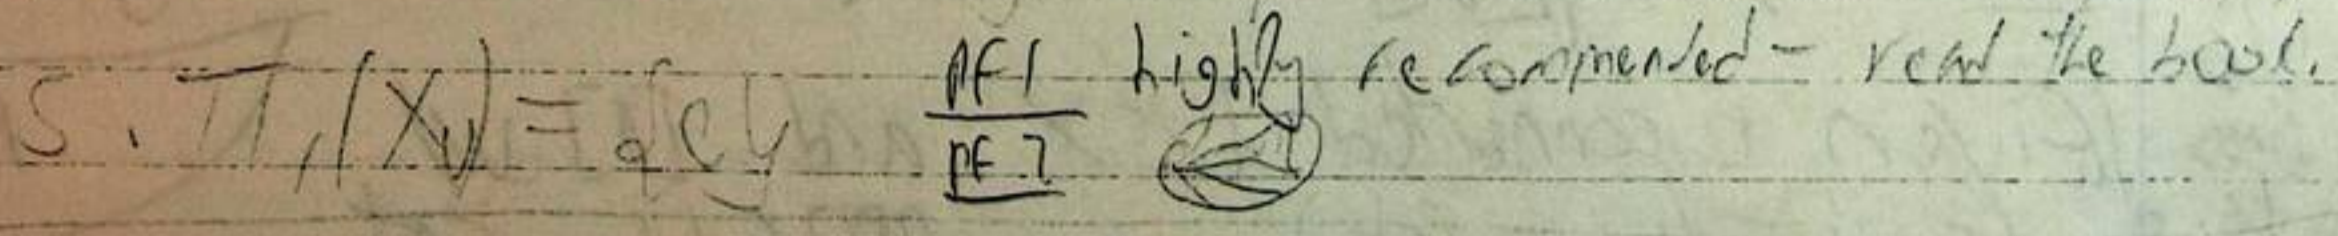 5. π₁(X₁) = {e} pf 1 highly recommended - read the book.
pf 2